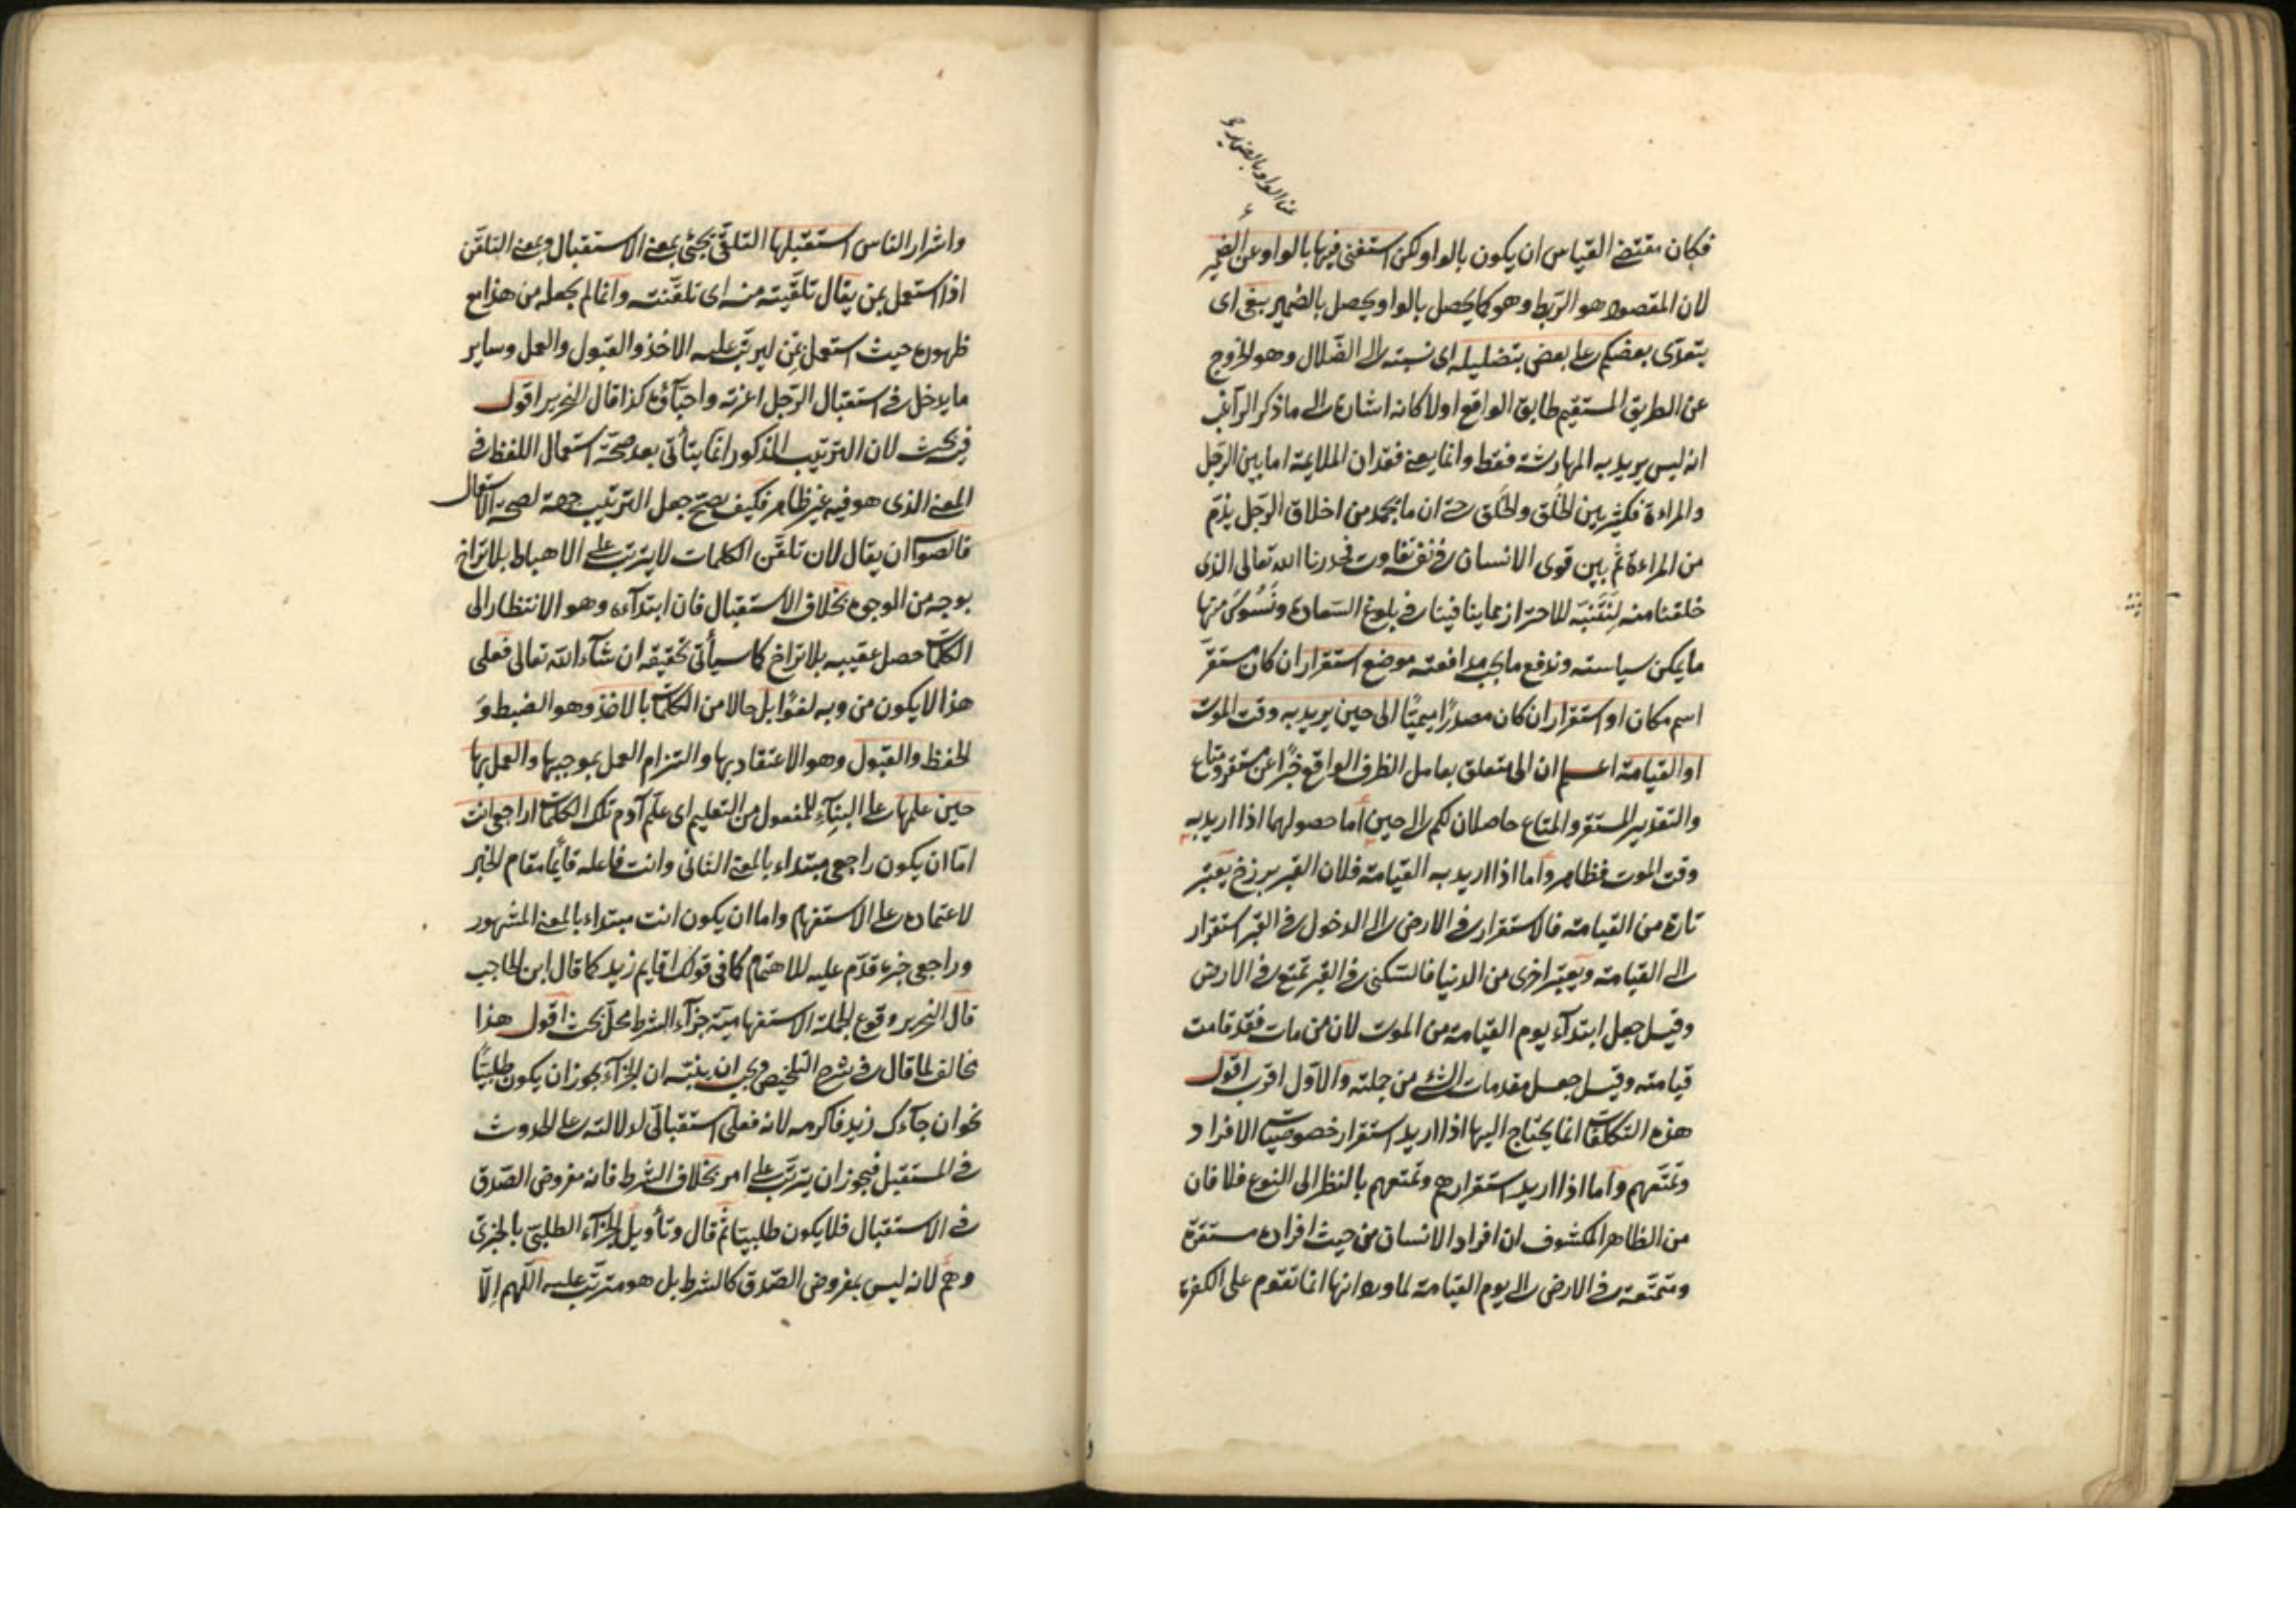 عن الواو بالضمير
فكان مقتضى القياس ان يكون بالواو لكن استغنى فيها بالواو عن الضمير
لان المقصود هو الربط وهو كما يحصل بالواو ويحصل بالضمير بغى اى
يتعدى بعضكم على بعض بتضليله اى نسبته الى الضلال وهو الخروج
عن الطريق المستقيم طابق الواقع اولا كانه اشارة الى ما ذكر الراغب
انه ليس يريد به المهارشة فقط وانما يعنى فقدان الملايمة اما بين الرجل
والمراءة فكثير بين الخلق والخلق حتى ان ما يحمد من اخلاق الرجل يذم
من المراءة ثم بين قوى الانسان فى نفسه تفاوت فحذرنا الله تعالى الذى
خلقنا منه لنتنبه للاحتراز مما ينافينا فى بلوغ السعادة ونسوس منها
ما يمكن سياسته وندفع ما يجب مدافعته موضع استقرار ان كان مستقر
اسم مكان او استقرار ان كان مصدرا ميميا الى حين يريد به وقت الموت
او القيامة اعلم ان الى متعلق بعامل الظرف الواقع خبرا عن مستقر ومتاع
والتقدير المستقر والمتاع حاصلان لكم الى حين اما حصولهما اذا اريد به
وقت الموت فظاهر واما اذا اريد به القيامة فلان القبر برزخ يعتبر
تارة من القيامة فالاستقرار فى الارض الى الدخول فى القبر استقرار
الى القيامة ويعتبر اخرى من الدنيا فالسكنى فى القبر تمتع فى الارض
وقيل جعل ابتدآء يوم القيامة من الموت لان من مات فقد قامت
قيامته وقيل جعل مقدمات الشئ من جملته والاول اقرب اقول
هذه التكلفات انما يحتاج اليها اذا اريد استقرار خصوصيات الافراد
وتمتعهم واما اذا اريد استقرارهم وتمتعهم بالنظر الى النوع فلا فان
من الظاهر المكشوف ان افراد الانسان من حيث افراده مستقرة
ومتمتعة فى الارض الى يوم القيامة لما ورد انها انما تقوم على الكفرة
واشرار الناس استقبلها التلقى يجئ بمعنى الاستقبال وبمعنى التلقن
اذا استعمل بمن يقال تلقيته منه اى تلقنته وانما لم يجعله من هذا مع
ظهوره حيث استعمل بمن ليرتب عليه الاخذ والقبول والعمل وساير
ما يدخل فى استقبال الرجل اعزته واحبآؤه كذا قال النحرير اقول
فيه بحث لان الترتيب المذكور انما يتأتى بعد صحة استعمال اللفظ فى
المعنى الذى هو فيه غير ظاهر فكيف يصح جعل الترتيب جهة لصحة الاستعمال
فالصواب ان يقال لان تلقن الكلمات لا يترتب على الاهباط بلا تراخ
بوجه من الوجوه بخلاف الاستقبال فان ابتدآءه وهو الانتظار الى
الكلمات حصل عقيبه بلا تراخ كما سيأتى تحقيقه ان شآء الله تعالى فعلى
هذا لا يكون من ربه لغوا بل حالا من الكلمات بالاخذ وهو الضبط و
الحفظ والقبول وهو الاعتقاد بها والتزام العمل بموجبها والعمل بها
حين علمها على البنآء للمفعول من التعليم اى علم آدم تلك الكلمات اراجعى انت
اما ان يكون راجعى مبتداء بالمعنى الثانى وانت فاعله قايما مقام الخبر
لاعتماده على الاستفهام واما ان يكون انت مبتداء بالمعنى المشهور
وراجعى خبره قدم عليه للاهتمام كما فى قولك اقايم زيد كما قال ابن الحاجب
قال النحرير وقوع الجملة الاستفهامية جزآء الشرط محل بحث اقول هذا
مخالف لما قال فى شرح التلخيص ويجب ان ينبه ان الجزآء يجوز ان يكون طلبيا
نحو ان جآءك زيد فاكرمه لانه فعلى استقبالى لدلالته على الحدوث
فى المستقبل فيجوز ان يترتب على امر بخلاف الشرط فانه مفروض الصدق
فى الاستقبال فلا يكون طلبيا ثم قال وتأويل الجزآء الطلبى بالخبرى
وهم لانه ليس بمفروض الصدق كالشرط بل هو مترتب عليه اللهم الا